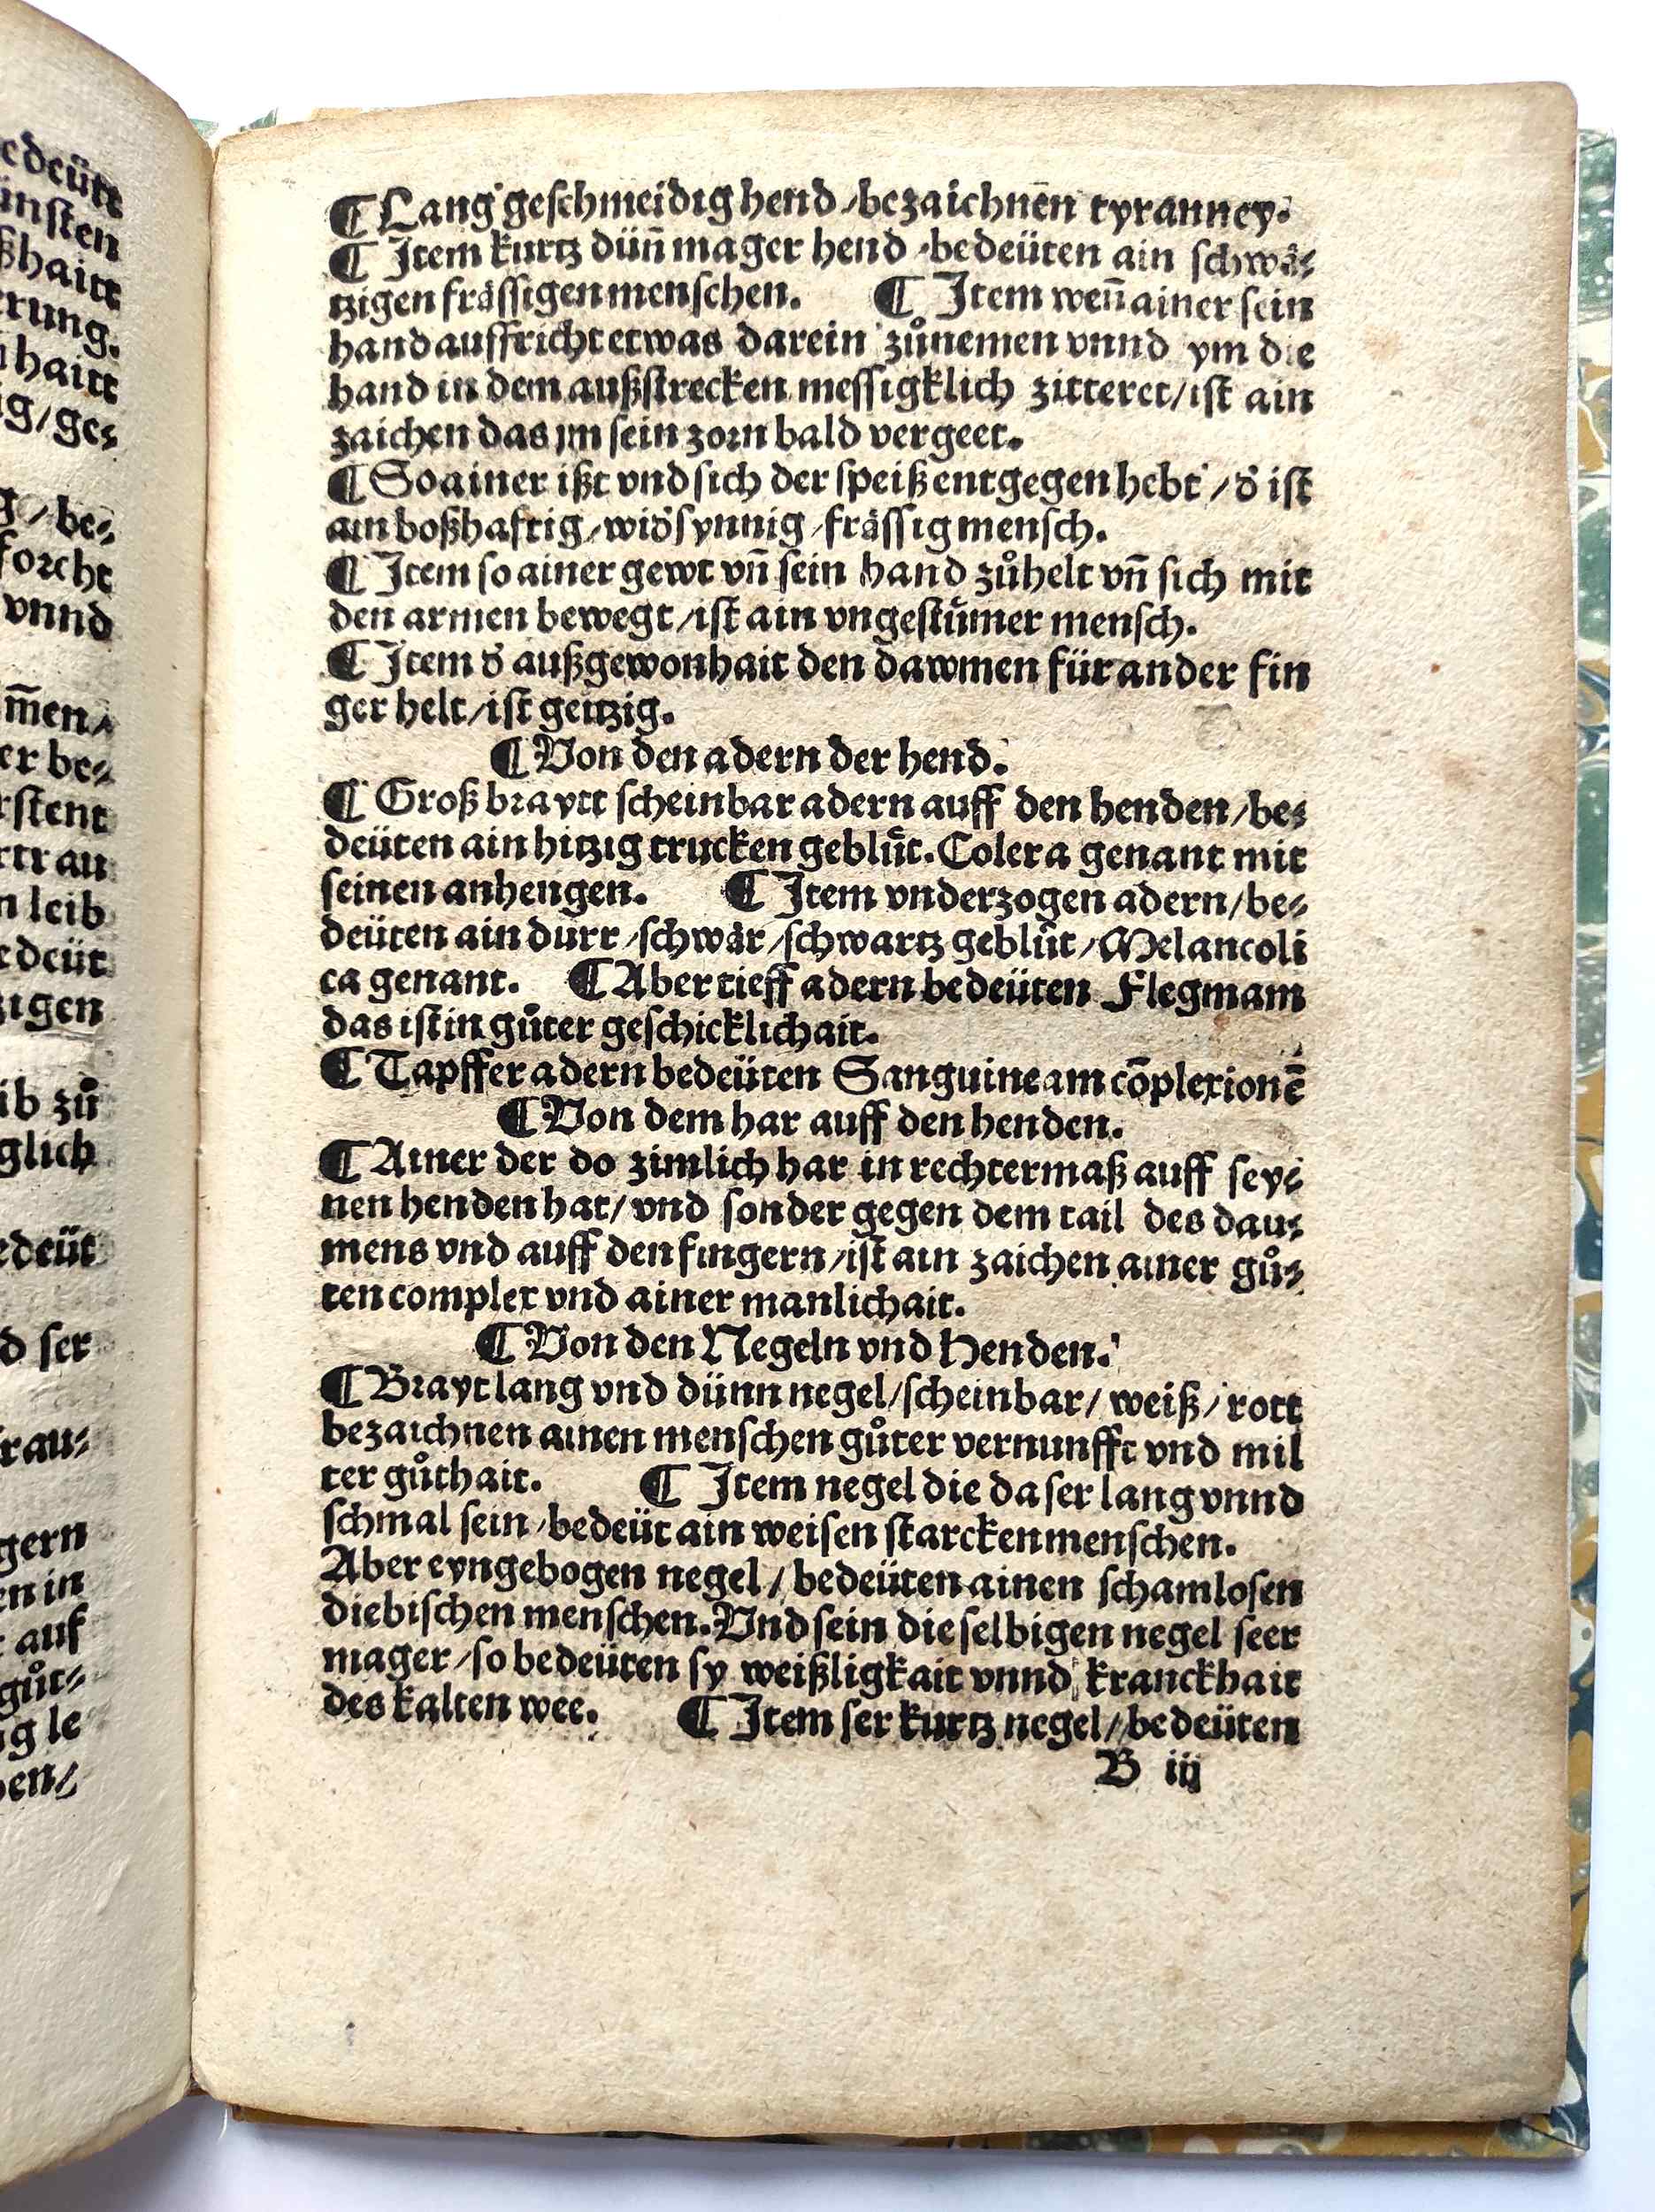 edeütt
ünsten
ßhaitt
erung.
haitt
ig/ges
g/be⸗
forcht
vnnd
m̄en/
er be⸗
rstent
rtrau
n leib
edeüt
igen
ib zů
glich
edeüt
d ser
rau⸗
gern
en in
auf
gůt⸗
ig le
en/
¶ Lang geschmeidig hend/bezaichnen tyranney.
¶ Item kurtz dün̄ mager hend/bedeüten ain schwä⸗
tzigen frässigen menschen. ¶ Item wen̄ ainer sein
hand auffricht etwas darein zůnemen vnnd ym die
hand in dem außstrecken messigklich zitteret/ist ain
zaichen das im sein zorn bald vergeet.
¶ So ainer ißt vnd sich der speiß entgegen hebt/d̕ ist
ain boßhafftig/wid̕synnig/frässig mensch.
¶ Item so ainer gewt vn̄ sein hand zůhelt vn̄ sich mit
den armen bewegt/ist ain vngestuͤmer mensch.
¶ Item d̕ außgewonhait den dawmen für ander fin
ger helt/ist geitzig.
¶ Von den adern der hend.
¶ Groß braytt scheinbar adern auff den henden/be⸗
deüten ain hitzig trucken gebluͤt. Colera genant mit
seinen anhengen. ¶ Item vnderzogen adern/be⸗
deüten ain durr/schwär/schwartz gebluͤt/Melancoli
ca genant. ¶ Aber tieff adern bedeüten Flegmam
das ist in gůter geschicklichait.
¶ Tapffer adern bedeüten Sanguineam cōplexionē
¶ Von dem har auff den henden.
¶ Ainer der do zimlich har in rechter maß auff sey⸗
nen henden hat/vnd sonder gegen dem tail des dau⸗
mens vnd auff den fingern/ist ain zaichen ainer gů⸗
ten complex vnd ainer manlichait.
¶ Von den Negeln vnd Henden.
¶ Brayt lang vnd dünn negel/scheinbar/weiß/rott
bezaichnen ainen menschen gůter vernunfft vnd mil
ter gůthait. ¶ Item negel die da ser lang vnnd
schmal sein/bedeüt ain weisen starcken menschen.
Aber eyngebogen negel/bedeüten ainen schamlosen
diebischen menschen. Vnd sein dieselbigen negel seer
mager/so bedeüten sy weißligkait vnnd kranckhait
des kalten wee. ¶ Item ser kurtz negel/bedeüten
B iij